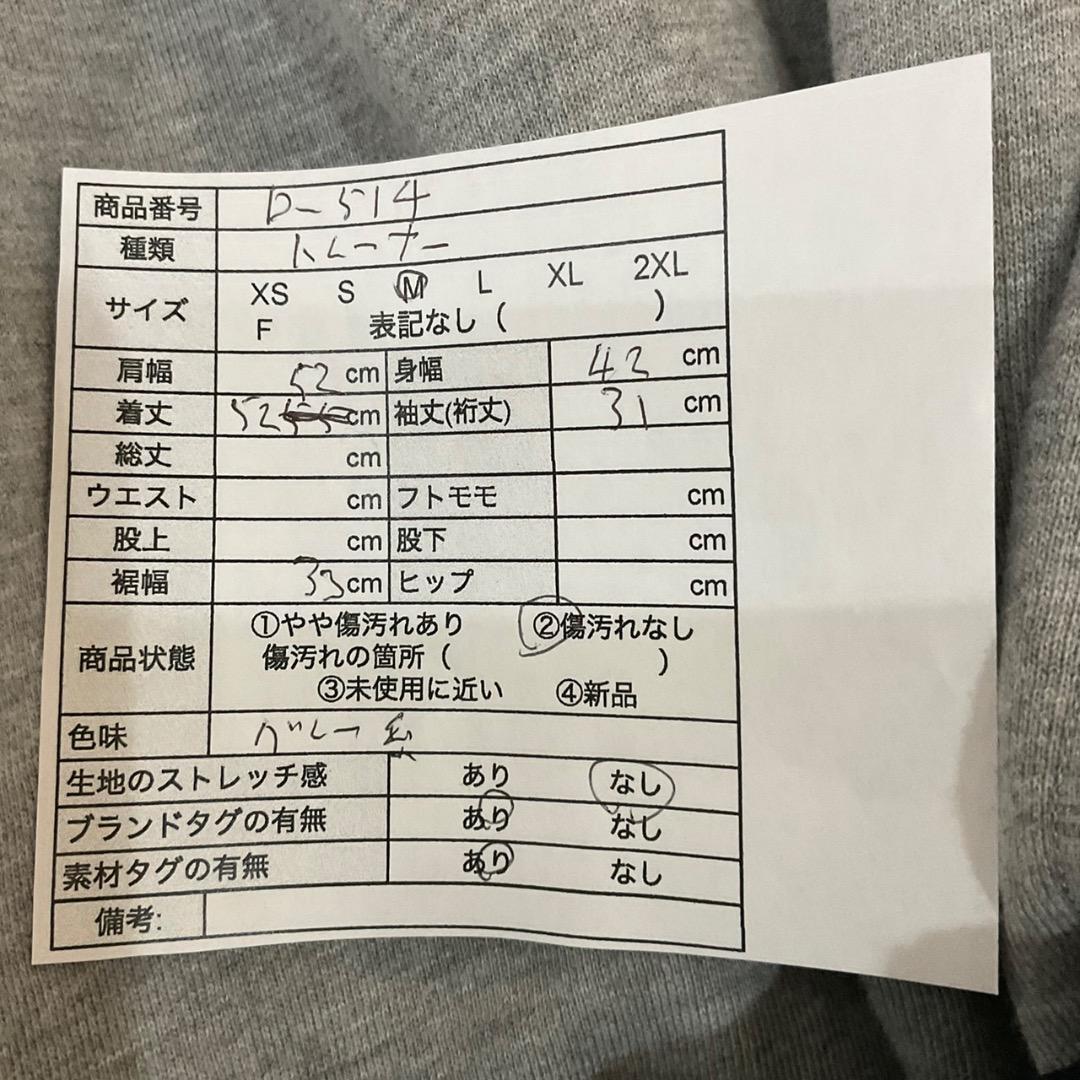 商品番号 D-514
種類 トレーナー
サイズ XS S M L XL 2XL
F 表記なし ( )
肩幅 52 cm 身幅 42 cm
着丈 52 cm 袖丈(裄丈) 31 cm
総丈 cm
ウエスト cm フトモモ cm
股上 cm 股下 cm
裾幅 33 cm ヒップ cm
①やや傷汚れあり ②傷汚れなし
商品状態 傷汚れの箇所 ( )
③未使用に近い ④新品
色味 グレー系
生地のストレッチ感 あり なし
ブランドタグの有無 あり なし
素材タグの有無 あり なし
備考: